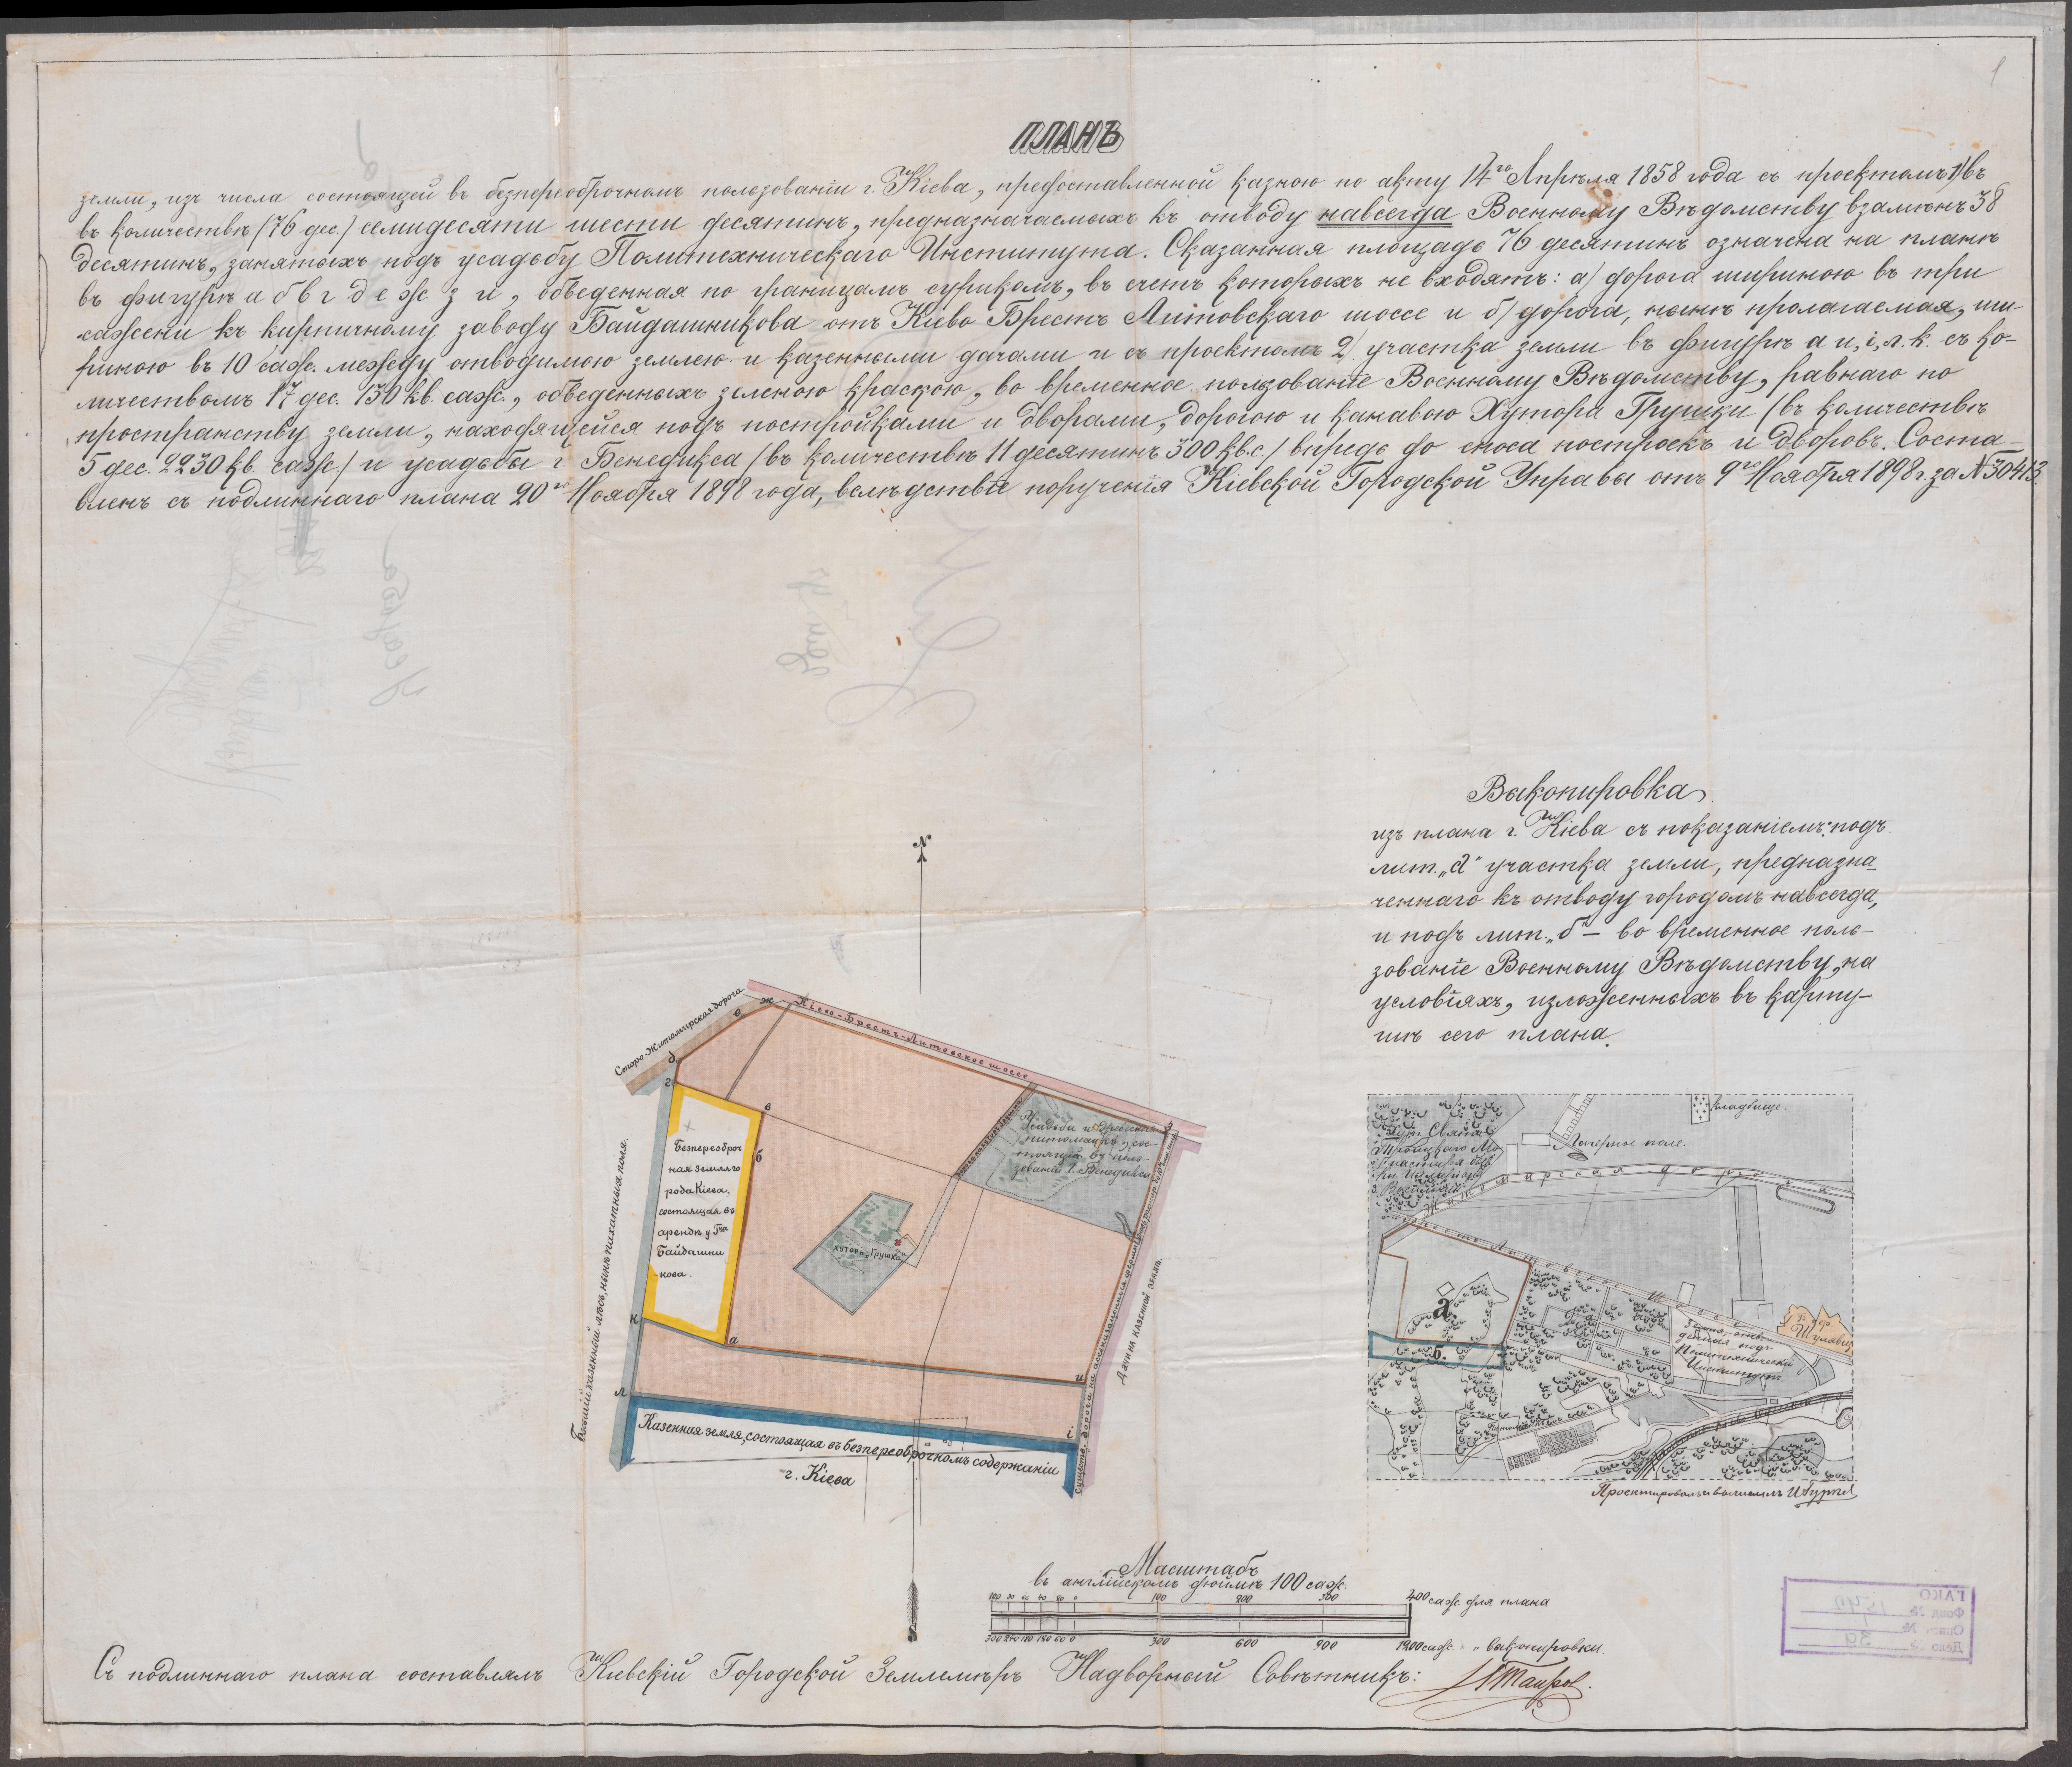 ПЛАНЪ
земли, изъ числа состоящей въ безпереоброчномъ пользованіи г. Кіева, предоставленной казною по акту 14го Апрѣля 1858 года съ проектомъ 1/ въ
въ количествѣ (76 дес.) семидесяти шести десятинъ, предназначаемыхъ къ отводу навсегда Военному Вѣдомству взамѣнъ 38
десятинъ, занятыхъ подъ усадьбу Политехническаго Института. Сказанная площадь 76 десятинъ означена на планѣ
въ фигурѣ а б в г д е ж з и, обведенная по границамъ сурикомъ, въ счетъ которыхъ не входятъ: а) дорога шириною въ три
сажени къ кирпичному заводу Байдашникова отъ Кіево Брестъ Литовскаго шоссе и б) дорога, нынѣ пролагаемая, ши-
риною въ 10 саж. между отводимою землею и казенными дачами и съ проектомъ 2/ участка земли въ фигурѣ а и, і, л. к. съ ко-
личествомъ 17 дес. 130 кв. саж., обведенныхъ зеленою краскою, во временное пользованіе Военному Вѣдомству, равнаго по
пространству земли, находящейся подъ постройками и дворами, дорогою и канавою Хутора Грушки (въ количествѣ
5 дес. 2230 кв. саж.) и усадьбы г. Бенедикса (въ количествѣ 11 десятинъ 300 кв.с.) впредь до сноса построекъ и дворовъ. Соста-
вленъ съ подлиннаго плана 20го Ноября 1898 года, вслѣдствіе порученія Кіевской Городской Управы отъ 9го Ноября 1898 г. за № 30413.
Выкопировка
изъ плана г. Кіева съ показаніемъ: подъ
лит. „а" участка земли, предназна-
ченнаго къ отводу городомъ навсегда,
и подъ лит. „б" – во временное поль-
зованіе Военному Вѣдомству, на
условіяхъ, изложенныхъ въ карту-
шѣ сего плана.
N
Старо-Житомирская дорога
Кіево-Брестъ-Литовское шоссе
ж
е
д
г
в
б
з
а
и
к
л
і
Усадьба и
питомникъ, сос-
тоящій въ поль-
зованіи г. Бенедикса
Безпереоброч
ная земля го
рода Кіева,
состоящая въ
арендѣ у Г-на
Байдашни
-кова.
хуторъ Грушки
Бывшій казенный лѣсъ, нынѣ пахатныя поля.
Дачи на казенной землѣ.
Казенная земля, состоящая въ безпереоброчномъ содержаніи
г. Кіева
кладбище.
Хут. Свято
Троицкаго Мо
настыря
Лагерное поле.
Житомирская дорога
Брестъ Литовское Шоссе
а
б.
Шулявка
Земля, отве-
денная подъ
Политехническій
Институтъ
Проектировалъ и вычислялъ
Масштабъ
въ англійскомъ дюймѣ 100 саж.
100 80 60 40 20 0 100 200 300 400 саж. для плана
300 240 180 120 60 0 300 600 900 1200 саж. " " выкопировки
S
Съ подлиннаго плана составлялъ Кіевскій Городской Землемѣръ Надворный Совѣтникъ:
ГАКО
Фонд №
Опис №
Дело № 39